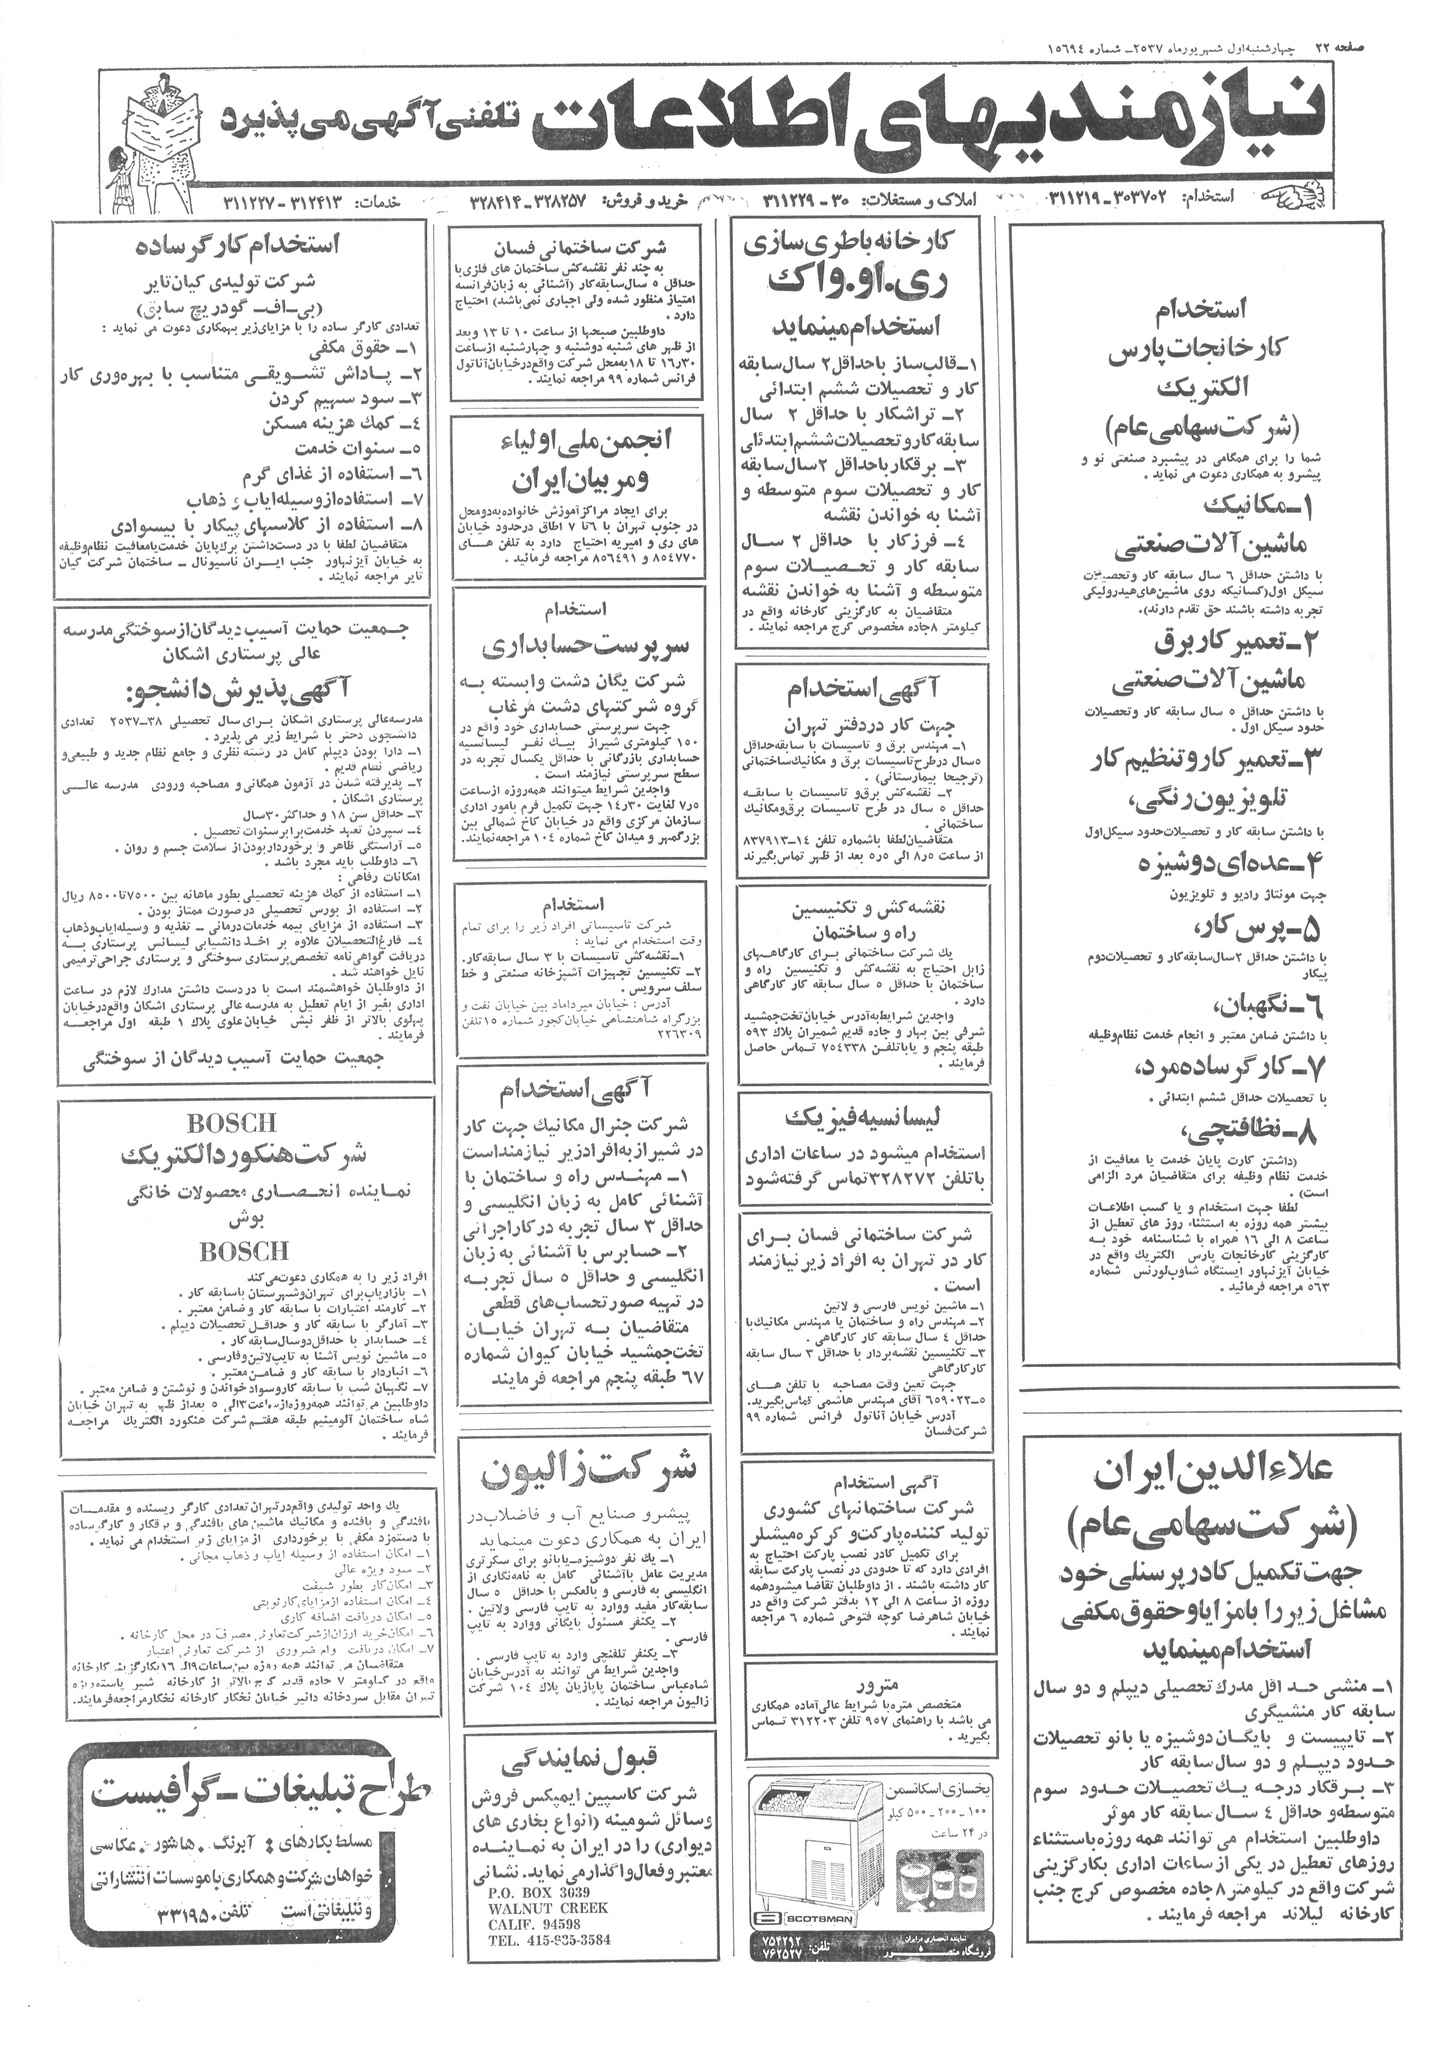 صفحه ۲۲ چهارشنبه اول شهریور ماه ۲۵۳۷ـ شماره ۱۵۶۹۴
نیازمندیهای اطلاعات تلفنی آگهی می پذیرد
استخدام: ۳۰۳۷۰۲ـ۳۱۱۲۱۹
املاک و مستغلات: ۳۰ـ۳۱۱۲۲۹
خرید و فروش: ۳۲۸۲۵۷ـ۳۲۸۴۱۴
خدمات: ۳۱۲۴۱۳ـ۳۱۱۲۲۷
استخدام
کارخانجات پارس
الکتریک
(شرکت سهامی عام)
شما را برای همگامی در پیشبرد صنعتی نو و
پیشرو به همکاری دعوت می نماید .
۱ـ مکانیک
ماشین آلات صنعتی
با داشتن حداقل ۶ سال سابقه کار و تحصیلات
سیکل اول(کسانیکه روی ماشین‌های هیدرولیکی
تجربه داشته باشند حق تقدم دارند).
۲ـ تعمیر کار برق
ماشین آلات صنعتی
با داشتن حداقل ۵ سال سابقه کار و تحصیلات
حدود سیکل اول .
۳ـ تعمیر کار و تنظیم کار
تلویزیون رنگی،
با داشتن سابقه کار و تحصیلات حدود سیکل اول
۴ـ عده‌ای دوشیزه
جهت مونتاژ رادیو و تلویزیون
۵ـ پرس کار،
با داشتن حداقل ۲ سال سابقه کار و تحصیلات دوم
پیکار
۶ـ نگهبان،
با داشتن ضامن معتبر و انجام خدمت نظام وظیفه
۷ـ کارگر ساده مرد،
با تحصیلات حداقل ششم ابتدائی .
۸ـ نظافتچی،
(داشتن کارت پایان خدمت یا معافیت از
خدمت نظام وظیفه برای متقاضیان مرد الزامی
است) .
لطفا جهت استخدام و یا کسب اطلاعات
بیشتر همه روزه به استثناء روز های تعطیل از
ساعت ۸ الی ۱۶ همراه با شناسنامه خود به
کارگزینی کارخانجات پارس الکتریک واقع در
خیابان آیزنهاور ایستگاه شاوب‌لورنس شماره
۵۶۳ مراجعه فرمائید .
علاءالدین ایران
(شرکت سهامی عام)
جهت تکمیل کادر پرسنلی خود
مشاغل زیر را با مزایا و حقوق مکفی
استخدام مینماید
۱ـ منشی حد اقل مدرک تحصیلی دیپلم و دو سال
سابقه کار منشیگری
۲ـ تایپیست و بایگان دوشیزه یا بانو تحصیلات
حدود دیپلم و دو سال سابقه کار
۳ـ برقکار درجه یک تحصیلات حدود سوم
متوسطه و حداقل ٤ سال سابقه کار موثر
داوطلبین استخدام می توانند همه روزه باستثناء
روزهای تعطیل در یکی از ساعات اداری بکارگزینی
شرکت واقع در کیلومتر ۸ جاده مخصوص کرج جنب
کارخانه لیلاند مراجعه فرمایند .
کارخانه باطری سازی
ری.او.واک
استخدام مینماید
۱ـ قالب‌ساز با حداقل ۲ سال سابقه
کار و تحصیلات ششم ابتدائی
۲ـ تراشکار با حداقل ۲ سال
سابقه کار و تحصیلات ششم ابتدائی
۳ـ برقکار با حداقل ۲ سال سابقه
کار و تحصیلات سوم متوسطه و
آشنا به خواندن نقشه
٤ـ فرز کار با حداقل ۲ سال
سابقه کار و تحصیلات سوم
متوسطه و آشنا به خواندن نقشه
متقاضیان به کارگزینی کارخانه واقع در
کیلومتر ۸ جاده مخصوص کرج مراجعه نمایند .
آگهی استخدام
جهت کار در دفتر تهران
۱ـ مهندس برق و تاسیسات با سابقه حداقل
۵ سال در طرح تاسیسات برق و مکانیک ساختمانی
(ترجیحا بیمارستانی) .
۲ـ نقشه‌کش برق و تاسیسات با سابقه
حداقل ۵ سال در طرح تاسیسات برق و مکانیک
ساختمانی .
متقاضیان لطفا با شماره تلفن ۱۴ـ۸۳۷۹۱۳
از ساعت ۸ر۵ الی ۵ر۵ بعد از ظهر تماس بگیرند
نقشه کش و تکنیسین
راه و ساختمان
یک شرکت ساختمانی برای کارگاههای
زابل احتیاج به نقشه‌کش و تکنیسین راه و
ساختمان با حداقل ۵ سال سابقه کار کارگاهی
دارد .
واجدین شرایط به آدرس خیابان تخت‌جمشید
شرقی بین بهار و جاده قدیم شمیران پلاک ۵۹۳
طبقه پنجم و یا با تلفن ۷۵٤۳۳۸ تماس حاصل
فرمایند .
لیسانسیه فیزیک
استخدام میشود در ساعات اداری
با تلفن ۳۲۸۲۷۲ تماس گرفته شود
شرکت ساختمانی فسان برای
کار در تهران به افراد زیر نیازمند
است .
۱ـ ماشین نویس فارسی و لاتین
۲ـ مهندس راه و ساختمان یا مهندس مکانیک با
حداقل ٤ سال سابقه کار کارگاهی .
۳ـ تکنیسین نقشه‌بردار با حداقل ۳ سال سابقه
کار کارگاهی
جهت تعین وقت مصاحبه با تلفن های
۵ـ۶۵۹۰۲۲ آقای مهندس هاشمی تماس بگیرید.
آدرس خیابان آناتول فرانس شماره ۹۹
شرکت فسان
آگهی استخدام
شرکت ساختمانهای کشوری
تولید کننده پارکت و کرکره میشلر
برای تکمیل کادر نصب پارکت احتیاج به
افرادی دارد که تا حدودی در نصب پارکت سابقه
کار داشته باشند . از داوطلبان تقاضا میشود همه
روزه از ساعت ۸ الی ۱۲ بدفتر شرکت واقع در
خیابان شاهرضا کوچه فتوحی شماره ۶ مراجعه
نمایند .
مترور
متخصص متره با شرایط عالی آماده همکاری
می باشد با راهنمای ۹۵۷ تلفن ۳۱۲۲۰۳ تماس
بگیرید .
یخسازی اسکاتسمن
۱۰۰ - ۲۰۰ - ۵۰۰ کیلو
در ۲۴ ساعت
SCOTSMAN
نماینده انحصاری در ایران
فروشگاه منصور
تلفن: ۷۵۴۲۹۲
۷۶۲۵۲۷
شرکت ساختمانی فسان
به چند نفر نقشه‌کش ساختمان های فلزی با
حداقل ۵ سال سابقه کار (آشنائی به زبان فرانسه
امتیاز منظور شده ولی اجباری نمی‌باشد) احتیاج
دارد .
داوطلبین صبحها از ساعت ۱۰ تا ۱۳ و بعد
از ظهر های شنبه دوشنبه و چهارشنبه از ساعت
۱۶ر۳۰ تا ۱۸ به محل شرکت واقع در خیابان آناتول
فرانس شماره ۹۹ مراجعه نمایند .
انجمن ملی اولیاء
و مربیان ایران
برای ایجاد مراکز آموزش خانواده به دو محل
در جنوب تهران با ۶ تا ۷ اطاق در حدود خیابان
های ری و امیریه احتیاج دارد به تلفن های
۸۵٤۷۷۰ و ۸۵۶٤۹۱ مراجعه فرمائید .
استخدام
سرپرست حسابداری
شرکت یگان دشت وابسته به
گروه شرکتهای دشت مرغاب
جهت سرپرستی حسابداری خود واقع در
۱۵۰ کیلومتری شیراز بیک نفر لیسانسیه
حسابداری بازرگانی با حداقل یکسال تجربه در
سطح سرپرستی نیازمند است .
واجدین شرایط میتوانند همه روزه از ساعت
۷ر۵ لغایت ۱٤ر۳۰ جهت تکمیل فرم بامور اداری
سازمان مرکزی واقع در خیابان کاخ شمالی بین
بزرگمهر و میدان کاخ شماره ۱۰٤ مراجعه نمایند.
استخدام
شرکت تاسیساتی افراد زیر را برای تمام
وقت استخدام می نماید :
۱ـ نقشه‌کش تاسیسات با ۳ سال سابقه کار.
۲ـ تکنیسین تجهیزات آشپزخانه صنعتی و خط
سلف سرویس .
آدرس : خیابان میرداماد بین خیابان نفت و
بزرگراه شاهنشاهی خیابان کجور شماره ۱۵ تلفن
۲۲۶۳۰۹
آگهی استخدام
شرکت جنرال مکانیک جهت کار
در شیراز به افراد زیر نیازمند است
۱ـ مهندس راه و ساختمان با
آشنائی کامل به زبان انگلیسی و
حداقل ۳ سال تجربه در کار اجرائی
۲ـ حسابرس با آشنائی به زبان
انگلیسی و حداقل ۵ سال تجربه
در تهیه صورتحساب‌های قطعی
متقاضیان به تهران خیابان
تخت جمشید خیابان کیوان شماره
۶۷ طبقه پنجم مراجعه فرمایند
شرکت زالیون
پیشرو صنایع آب و فاضلاب در
ایران به همکاری دعوت مینماید
۱ـ یک نفر دوشیزه یا بانو برای سکرتری
مدیریت عامل با آشنائی کامل به نامه‌نگاری از
انگلیسی به فارسی و بالعکس با حداقل ۵ سال
سابقه کار مفید و وارد به تایپ فارسی و لاتین .
۲ـ یکنفر مسئول بایگانی و وارد به تایپ
فارسی .
۳ـ یکنفر تلفنچی وارد به تایپ فارسی .
واجدین شرایط می توانند به آدرس خیابان
شاه‌عباس ساختمان پاپازیان پلاک ۱۰٤ شرکت
زالیون مراجعه نمایند .
قبول نمایندگی
شرکت کاسپین ایمپکس فروش
وسائل شومینه (انواع بخاری های
دیواری) را در ایران به نماینده
معتبر و فعال واگذار می نماید. نشانی
P.O. BOX 3639
WALNUT CREEK
CALIF. 94598
TEL. 415-935-3584
استخدام کارگر ساده
شرکت تولیدی کیان تایر
(بی-اف- گودریچ سابق)
تعدادی کارگر ساده را با مزایای زیر بهمکاری دعوت می نماید :
۱ـ حقوق مکفی
۲ـ پاداش تشویقی متناسب با بهره‌وری کار
۳ـ سود سهیم کردن
٤ـ کمک هزینه مسکن
۵ـ سنوات خدمت
۶ـ استفاده از غذای گرم
۷ـ استفاده از وسیله ایاب و ذهاب
۸ـ استفاده از کلاسهای پیکار با بیسوادی
متقاضیان لطفا با در دست داشتن برگ پایان خدمت یا معافیت نظام وظیفه
به خیابان آیزنهاور جنب ایران ناسیونال ـ ساختمان شرکت کیان
تایر مراجعه نمایند .
جمعیت حمایت آسیب دیدگان از سوختگی مدرسه
عالی پرستاری اشکان
آگهی پذیرش دانشجو:
مدرسه عالی پرستاری اشکان برای سال تحصیلی ۳۸ـ۲۵۳۷ تعدادی
دانشجوی دختر با شرایط زیر می پذیرد .
۱ـ دارا بودن دیپلم کامل در رشته نظری و جامع نظام جدید و طبیعی و
ریاضی نظام قدیم .
۲ـ پذیرفته شدن در آزمون همگانی و مصاحبه ورودی مدرسه عالی
پرستاری اشکان .
۳ـ حداقل سن ۱۸ و حداکثر ۳۰ سال
٤ـ سپردن تعهد خدمت برابر سنوات تحصیل .
۵ـ آراستگی ظاهر و برخوردار بودن از سلامت جسم و روان .
۶ـ داوطلب باید مجرد باشد .
امکانات رفاهی :
۱ـ استفاده از کمک هزینه تحصیلی بطور ماهانه بین ۷۵۰۰ تا ۸۵۰۰ ریال
۲ـ استفاده از بورس تحصیلی در صورت ممتاز بودن .
۳ـ استفاده از مزایای بیمه خدمات درمانی ـ تغذیه و وسیله ایاب و ذهاب
٤ـ فارغ‌التحصیلان علاوه بر اخذ دانشیابی لیسانس پرستاری به
دریافت گواهی نامه تخصص پرستاری سوختگی و پرستاری جراحی ترمیمی
نایل خواهند شد .
از داوطلبان خواهشمند است با در دست داشتن مدارک لازم در ساعت
اداری بغیر از ایام تعطیل به مدرسه عالی پرستاری اشکان واقع در خیابان
پهلوی بالاتر از ظفر نبش خیابان علوی پلاک ۱ طبقه اول مراجعه
فرمایند .
جمعیت حمایت آسیب دیدگان از سوختگی
BOSCH
شرکت هنکورد الکتریک
نماینده انحصاری محصولات خانگی
بوش
BOSCH
افراد زیر را به همکاری دعوت می کند
۱ـ بازاریاب برای تهران و شهرستان با سابقه کار .
۲ـ کارمند اعتبارات با سابقه کار و ضامن معتبر .
۳ـ آمارگر با سابقه کار و حداقل تحصیلات دیپلم .
٤ـ حسابدار با حداقل دو سال سابقه کار .
۵ـ ماشین نویس آشنا به تایپ لاتین و فارسی .
۶ـ انباردار با سابقه کار و ضامن معتبر .
۷ـ نگهبان شب با سابقه کار و سواد خواندن و نوشتن و ضامن معتبر .
داوطلبین می توانند همه روزه از ساعت ۳ الی ۵ بعد از ظهر به تهران خیابان
شاه ساختمان آلومینیم طبقه هفتم شرکت هنکورد الکتریک مراجعه
فرمایند .
یک واحد تولیدی واقع در تهران تعدادی کارگر ریسنده و مقدمات
بافندگی و بافنده و مکانیک ماشین های بافندگی و برقکار و کارگر ساده
با دستمزد مکفی با برخورداری از مزایای زیر استخدام می نماید .
۱ـ امکان استفاده از وسیله ایاب و ذهاب مجانی .
۲ـ سود ویژه عالی
۳ـ امکان کار بطور شیفت
٤ـ امکان استفاده از مزایای کار نوبتی
۵ـ امکان دریافت اضافه کاری
۶ـ امکان خرید ارزان از شرکت تعاونی مصرف در محل کارخانه .
۷ـ امکان دریافت وام ضروری از شرکت تعاونی اعتبار
متقاضیان می توانند همه روزه بین ساعات ۹ الی ۱۶ بکارگزینی کارخانه
واقع در کیلومتر ۷ جاده قدیم کرج بالاتر از کارخانه شیر پاستوریزه
تهران مقابل سردخانه دانیر خیابان نخکار کارخانه نخکار مراجعه فرمایند.
طراح تبلیغات - گرافیست
مسلط بکارهای : آبرنگ . هاشور . عکاسی
خواهان شرکت و همکاری با موسسات انتشاراتی
و تبلیغاتی است تلفن ۳۳۱۹۵۰